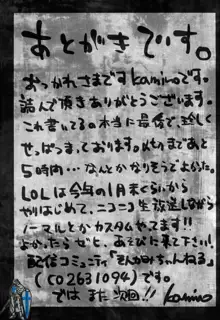 あとがきでいす。
おつかれさまですkaminoです。
読んで頂きありがとうございます。
これ書いてるの本当に最後で、珍しく
せっぱつまっております。〆切まであと
5時間…なんとかなりそうでよかった。
LOLは今年の1月末ぐらいから
やりはじめて、ニコニコ生放送しながら
ノーマルとかカスタムやってます!!
よかったらゼヒ、あそびに来て下さい!
配信コミュニティ「そんがみちゃんねる」
(co2631094)です。
ではまた次回!! kamino